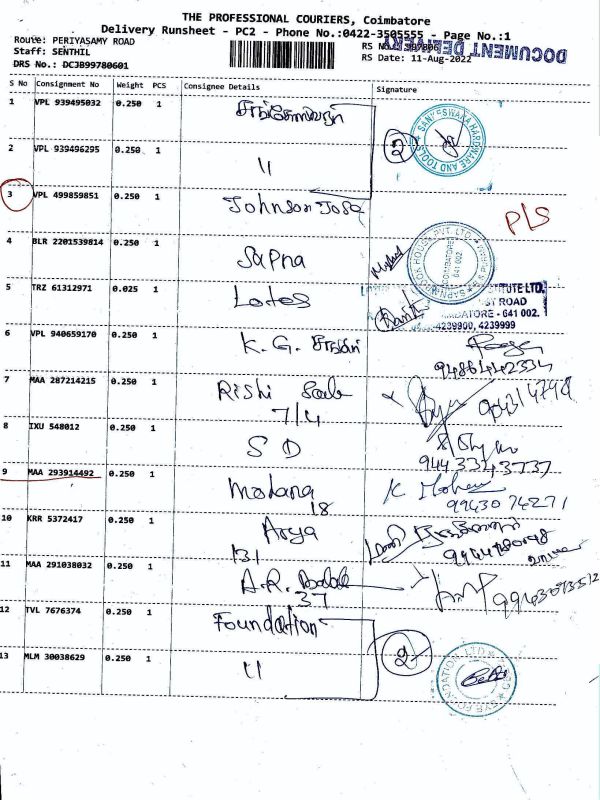 THE PROFESSIONAL COURIERS, Coimbatore
Delivery Runsheet - PC2 - Phone No.:0422-3505555 - Page No.:1
Route: PERIYASAMY ROAD
Staff: SENTHIL
DRS No.: DCJB99780601
RS No.: 997806
DOCUMENT DELIVERY
RS Date: 11-Aug-2022
S No Consignment No Weight PCS Consignee Details Signature
1 VPL 939495032 0.250 1
SANKESWARA HARDWARE AND TOOLS
2
2 VPL 939496295 0.250 1 "
3 VPL 499859851 0.250 1 Johnson Jose
P/S
4 BLR 2201539814 0.250 1 Sapna
SAPNA BOOK HOUSE PVT. LTD.
COIMBATORE
641 002
5 TRZ 61312971 0.025 1 Lotes
TUTE LTD.
ST ROAD
MBATORE - 641 002.
4239900, 4239999
6 VPL 940659170 0.250 1 K. G.
9486442334
7 MAA 287214215 0.250 1 Rishi
7/4
8 IXU 548012 0.250 1 S D
9443343737
9 MAA 293914492 0.250 1 K Mohan
18 9943074271
10 KRR 5372417 0.250 1 Arya
131
11 MAA 291038032 0.250 1 A.R.
37
12 TVL 7676374 0.250 1 Foundation
2
13 MLM 30038629 0.250 1 "
FOUNDATION LTD